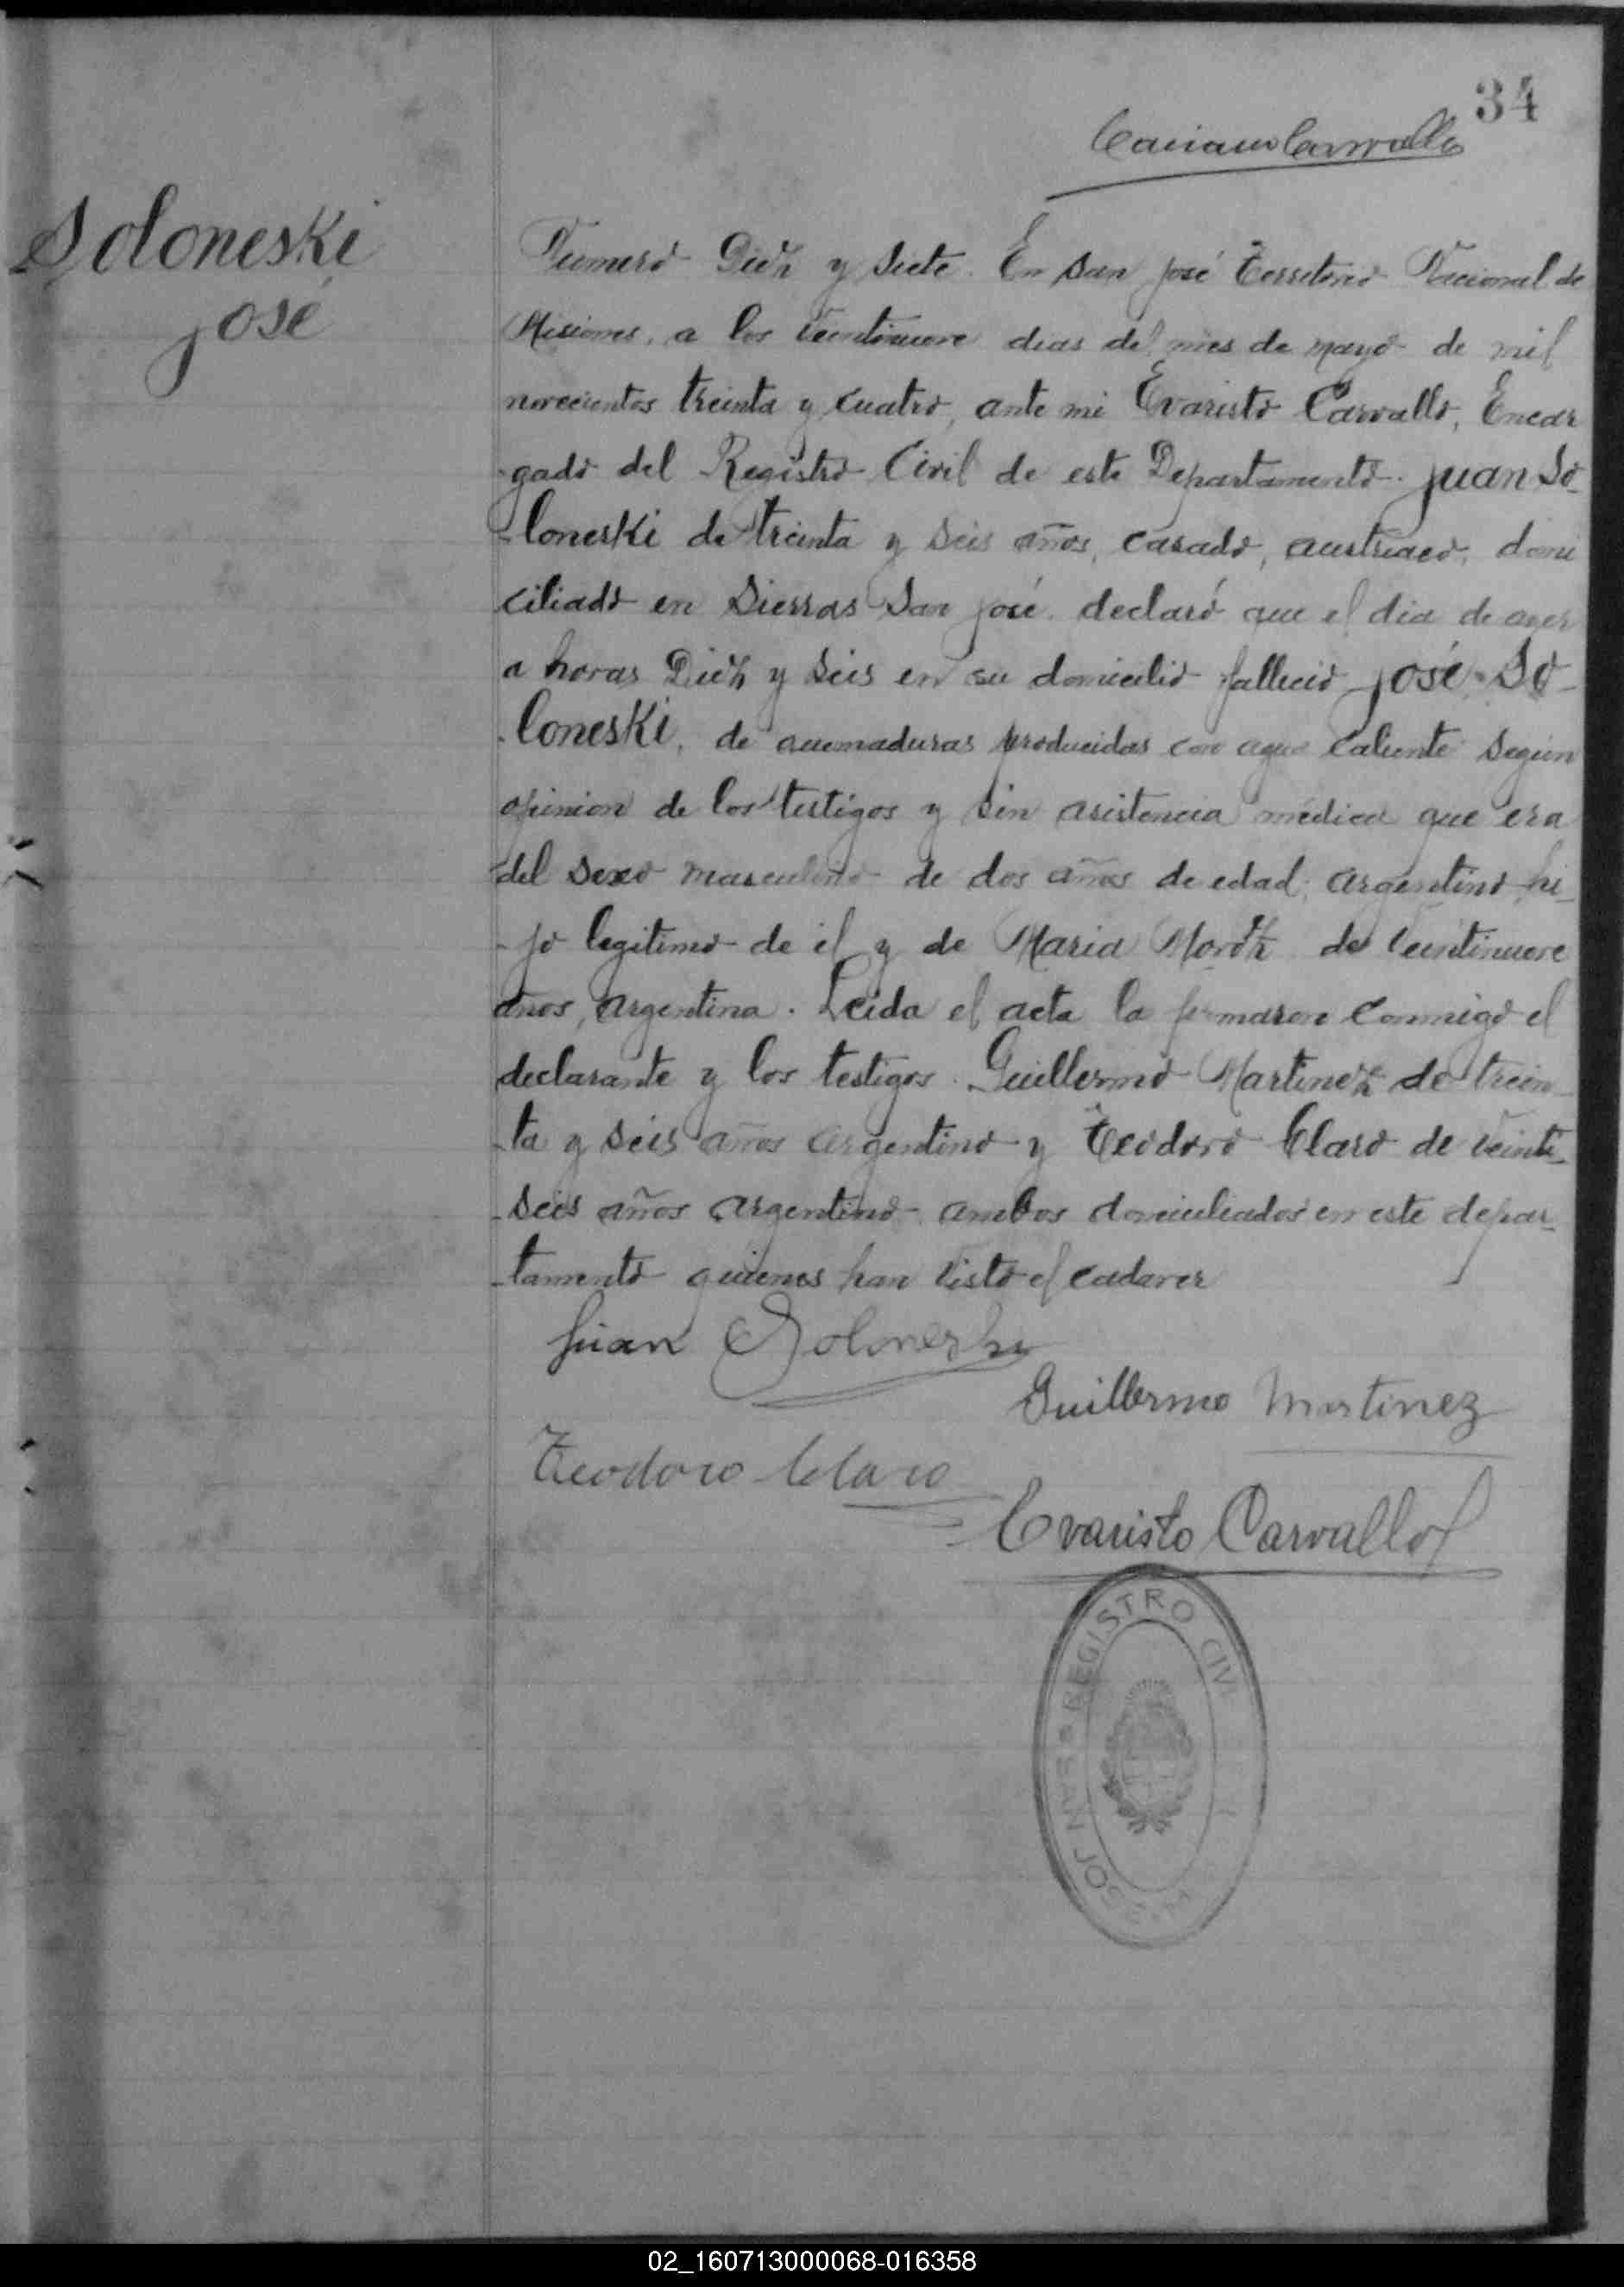 34
Carvallo
Soloneski
José
Numero Diez y Siete. En San José Territorio Nacional de
Misiones, a los veintinueve dias del mes de mayo de mil
novecientos treinta y cuatro, ante mi Evaristo Carvallo, Encar
gado del Registro Civil de este Departamento. Juan So-
-loneski de treinta y seis años, casado, austriaco, domi
ciliado en Sierras San José. declaró que el dia de ayer
a horas Diez y seis en su domicilio falleció José So-
-loneski, de quemaduras producidas con agua caliente según
opinion de los testigos y sin asistencia médica que era
del sexo masculino de dos años de edad, argentino hi-
-jo legitimo de él y de Maria Moroz de veintinueve
años, argentina. Leida el acta la firmaron conmigo el
declarante y los testigos. Guillermo Martinez de trein-
-ta y seis años argentino y Teodoro Claro de veinti-
-seis años argentino ambos domiciliados en este depar-
-tamento quienes han visto el cadaver
Juan Soloneski
Guillermo Martinez
Teodoro Claro
Evaristo Carvallo
REGISTRO CIVI
SAN JOSE
02_160713000068-016358